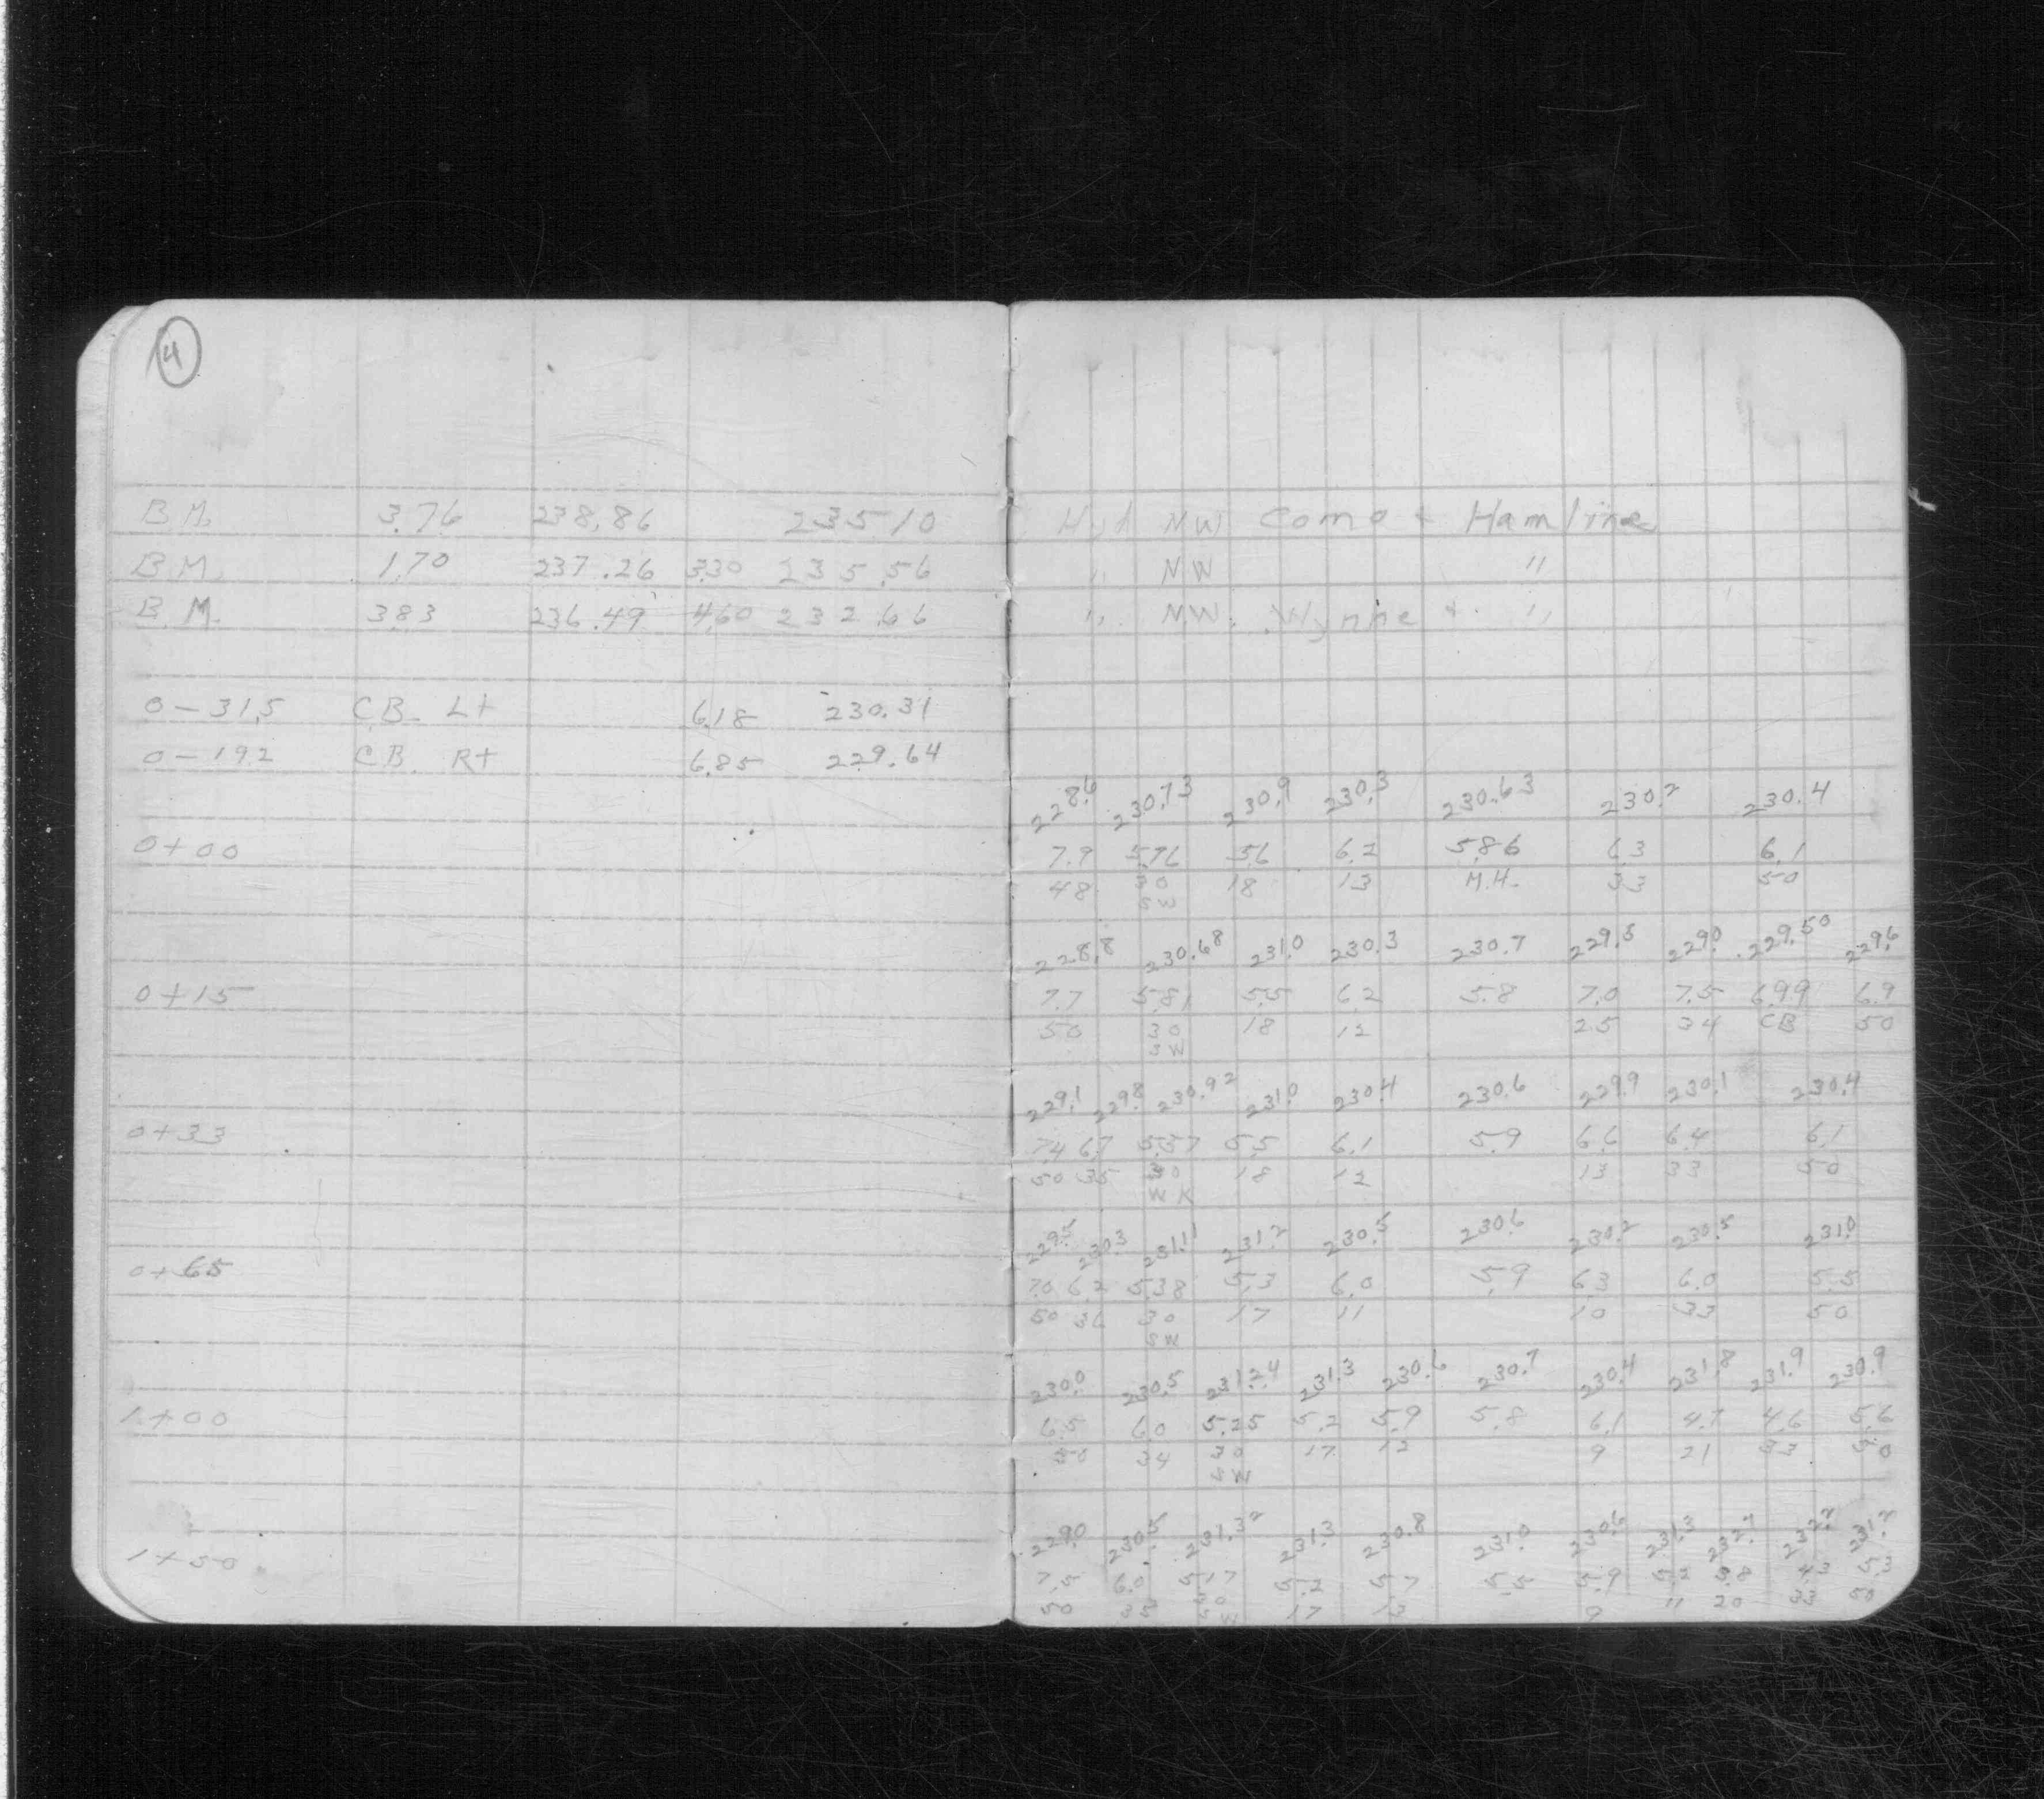 4
B.M. 3.76 238.86 235.10 Hyd NW Como + Hamline
B.M. 1.70 237.26 3.30 235.56 " NW "
B.M. 3.83 236.49 4.60 232.66 " NW. Wynne + "
0-31.5 CB. Lt 6.18 230.31
0-19.2 CB. Rt 6.85 229.64
228.6 230.73 230.9 230.3 230.63 230.2 230.4
0+00 7.9 5.76 5.6 6.2 5.86 6.3 6.1
48 30 18 13 M.H. 33 50
SW
228.8 230.68 231.0 230.3 230.7 229.5 229.0 229.50 229.6
0+15 7.7 5.81 5.5 6.2 5.8 7.0 7.5 6.99 6.9
50 30 18 12 25 34 CB 50
SW
229.1 229.8 230.92 231.0 230.4 230.6 229.9 230.1 230.4
0+33 7.4 6.7 5.57 5.5 6.1 5.9 6.6 6.4 6.1
50 35 30 18 12 13 33 50
WK
229.5 230.3 231.11 231.2 230.5 230.6 230.2 230.5 231.0
0+65 7.0 6.2 5.38 5.3 6.0 5.9 6.3 6.0 5.5
50 36 30 17 11 10 33 50
SW
230.0 230.5 231.24 231.3 230.6 230.7 230.4 231.8 231.9 230.9
1+00 6.5 6.0 5.25 5.2 5.9 5.8 6.1 4.7 4.6 5.6
50 34 30 17 12 9 21 33 50
SW
229.0 230.5 231.32 231.3 230.8 231.0 230.6 231.3 232.7 232.2 231.2
1+50 7.5 6.0 5.17 5.2 5.7 5.5 5.9 5.2 3.8 4.3 5.3
50 35 30 17 12 9 11 20 33 50
SW